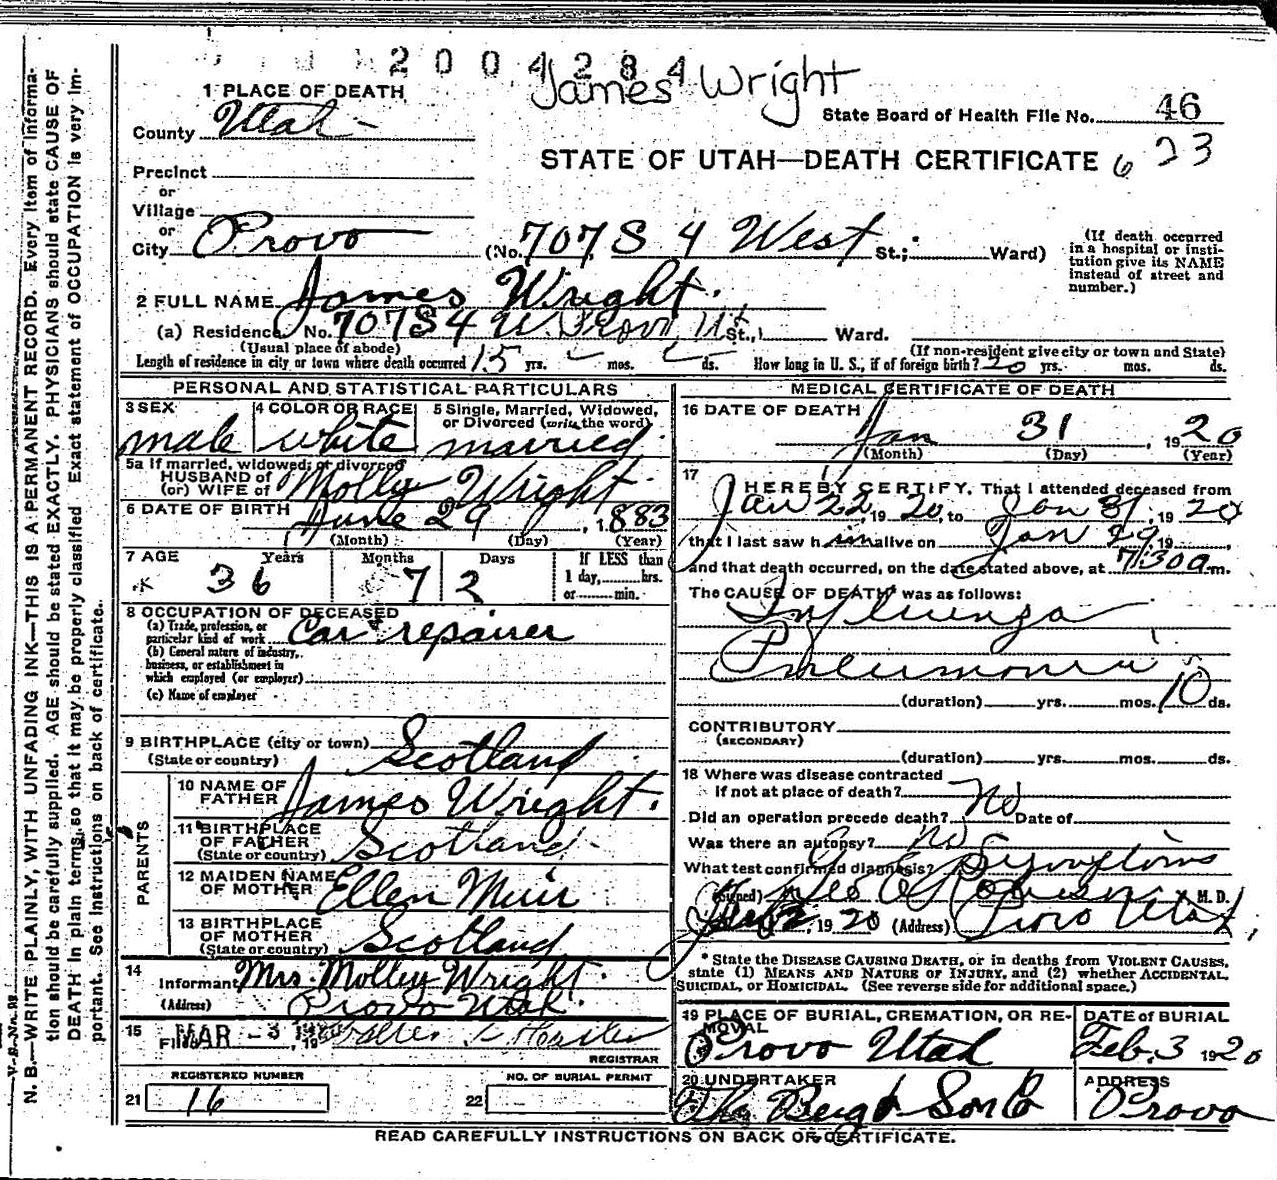 2004284
James Wright
1 PLACE OF DEATH
County Utah
State Board of Health File No. 46
STATE OF UTAH—DEATH CERTIFICATE 6 23
Precinct
or
Village
or
City Provo (No. 707 S 4 West St.; Ward)
(If death occurred in a hospital or institution give its NAME instead of street and number.)
2 FULL NAME James Wright.
(a) Residence No. 707 S 4 W. Provo, Ut St., Ward.
(Usual place of abode) (If non-resident give city or town and State)
Length of residence in city or town where death occurred 15 yrs. mos. ds. How long in U. S., if of foreign birth? 20 yrs. mos. ds.
PERSONAL AND STATISTICAL PARTICULARS
3 SEX male
4 COLOR OR RACE white
5 Single, Married, Widowed, or Divorced (write the word) married
5a If married, widowed, or divorced
HUSBAND of
(or) WIFE of Molly Wright
6 DATE OF BIRTH June 29, 1883
(Month) (Day) (Year)
7 AGE Years Months Days If LESS than
36 7 2 1 day, hrs.
or min.
8 OCCUPATION OF DECEASED
(a) Trade, profession, or particular kind of work Car repairer
(b) General nature of industry, business, or establishment in which employed (or employer)
(c) Name of employer
9 BIRTHPLACE (city or town) Scotland
(State or country)
PARENTS
10 NAME OF FATHER James Wright.
11 BIRTHPLACE OF FATHER Scotland
(State or country)
12 MAIDEN NAME OF MOTHER Ellen Muir
13 BIRTHPLACE OF MOTHER Scotland
(State or country)
14 Informant Mrs. Molley Wright
(Address) Provo Utah.
15 Filed MAR - 3 1920
REGISTRAR
REGISTERED NUMBER NO. OF BURIAL PERMIT
21 16 22
MEDICAL CERTIFICATE OF DEATH
16 DATE OF DEATH
Jan 31, 1920
(Month) (Day) (Year)
17 I HEREBY CERTIFY, That I attended deceased from
Jan 22, 1920, to Jan 31, 1920
that I last saw him alive on Jan 29, 19
and that death occurred, on the date stated above, at 7:30 a m.
The CAUSE OF DEATH was as follows:
Influenza
Pneumonia
(duration) yrs. mos. 10 ds.
CONTRIBUTORY
(SECONDARY)
(duration) yrs. mos. ds.
18 Where was disease contracted
If not at place of death?
Did an operation precede death? No Date of
Was there an autopsy? No
What test confirmed diagnosis? Symptoms
(Signed) M. D.
2, 1920 (Address) Provo Utah,
* State the DISEASE CAUSING DEATH, or in deaths from VIOLENT CAUSES,
state (1) MEANS AND NATURE OF INJURY, and (2) whether ACCIDENTAL,
SUICIDAL, or HOMICIDAL. (See reverse side for additional space.)
19 PLACE OF BURIAL, CREMATION, OR REMOVAL DATE of BURIAL
Provo Utah Feb. 3 1920
20 UNDERTAKER ADDRESS
Berg & Son Co Provo
READ CAREFULLY INSTRUCTIONS ON BACK OF CERTIFICATE.
N. B.—WRITE PLAINLY, WITH UNFADING INK—THIS IS A PERMANENT RECORD. Every item of informa-
tion should be carefully supplied. AGE should be stated EXACTLY. PHYSICIANS should state CAUSE OF
DEATH in plain terms, so that it may be properly classified. Exact statement of OCCUPATION is very im-
portant. See instructions on back of certificate.